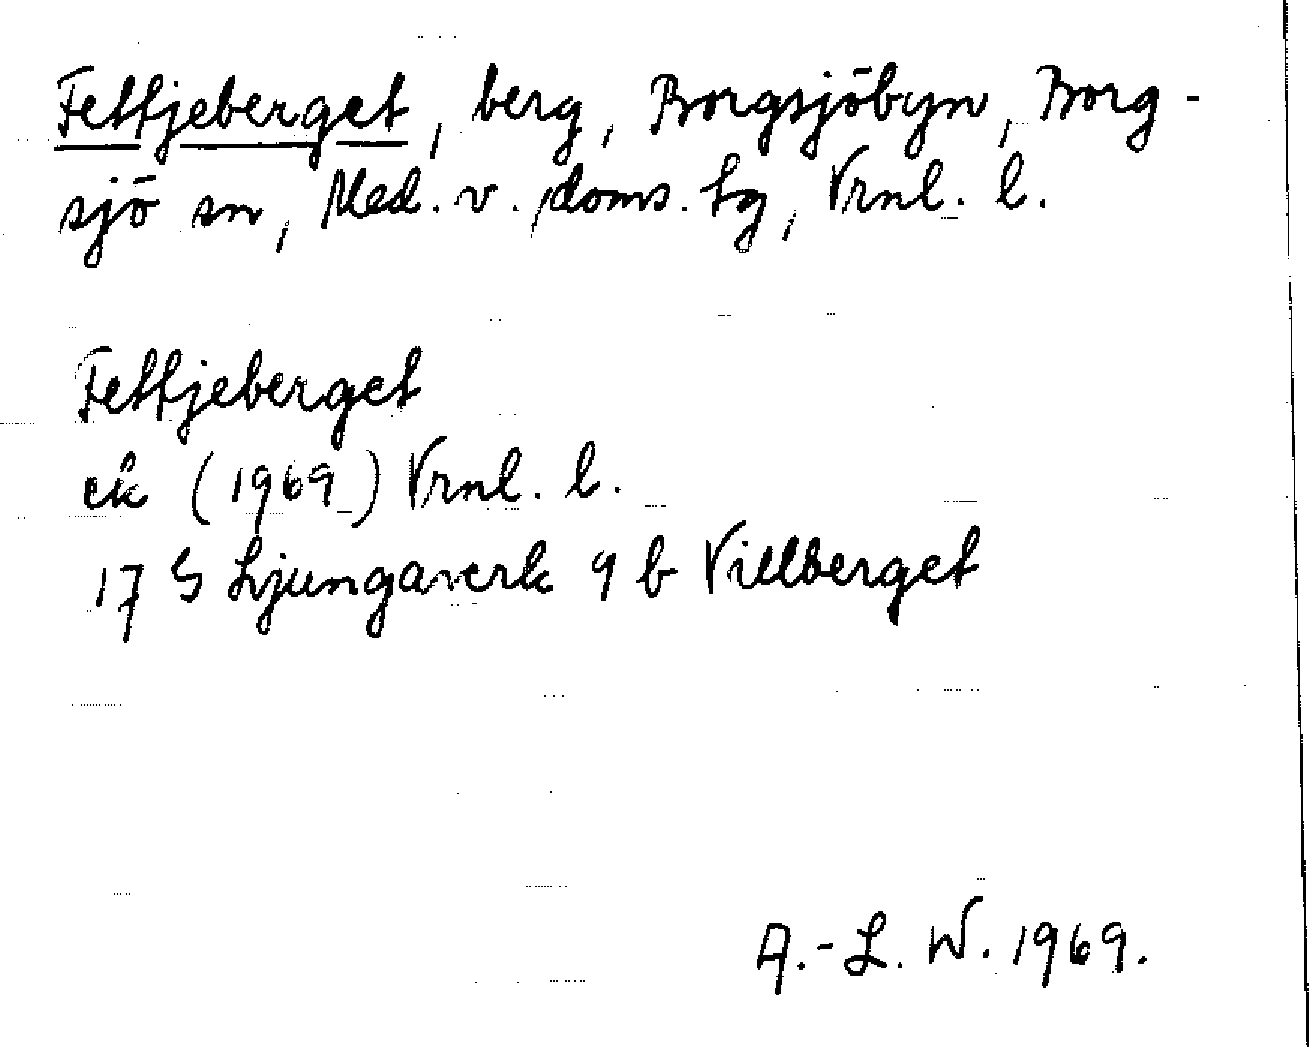 Fettjeberget, berg, Borgsjöbyn, Borg-
sjö sn, Med. v. doms. tg, Vrnl. l.
Fettjeberget
ek (1969) Vrnl. l.
17 G Ljungaverk 9 b Villberget
A.-L. W. 1969.